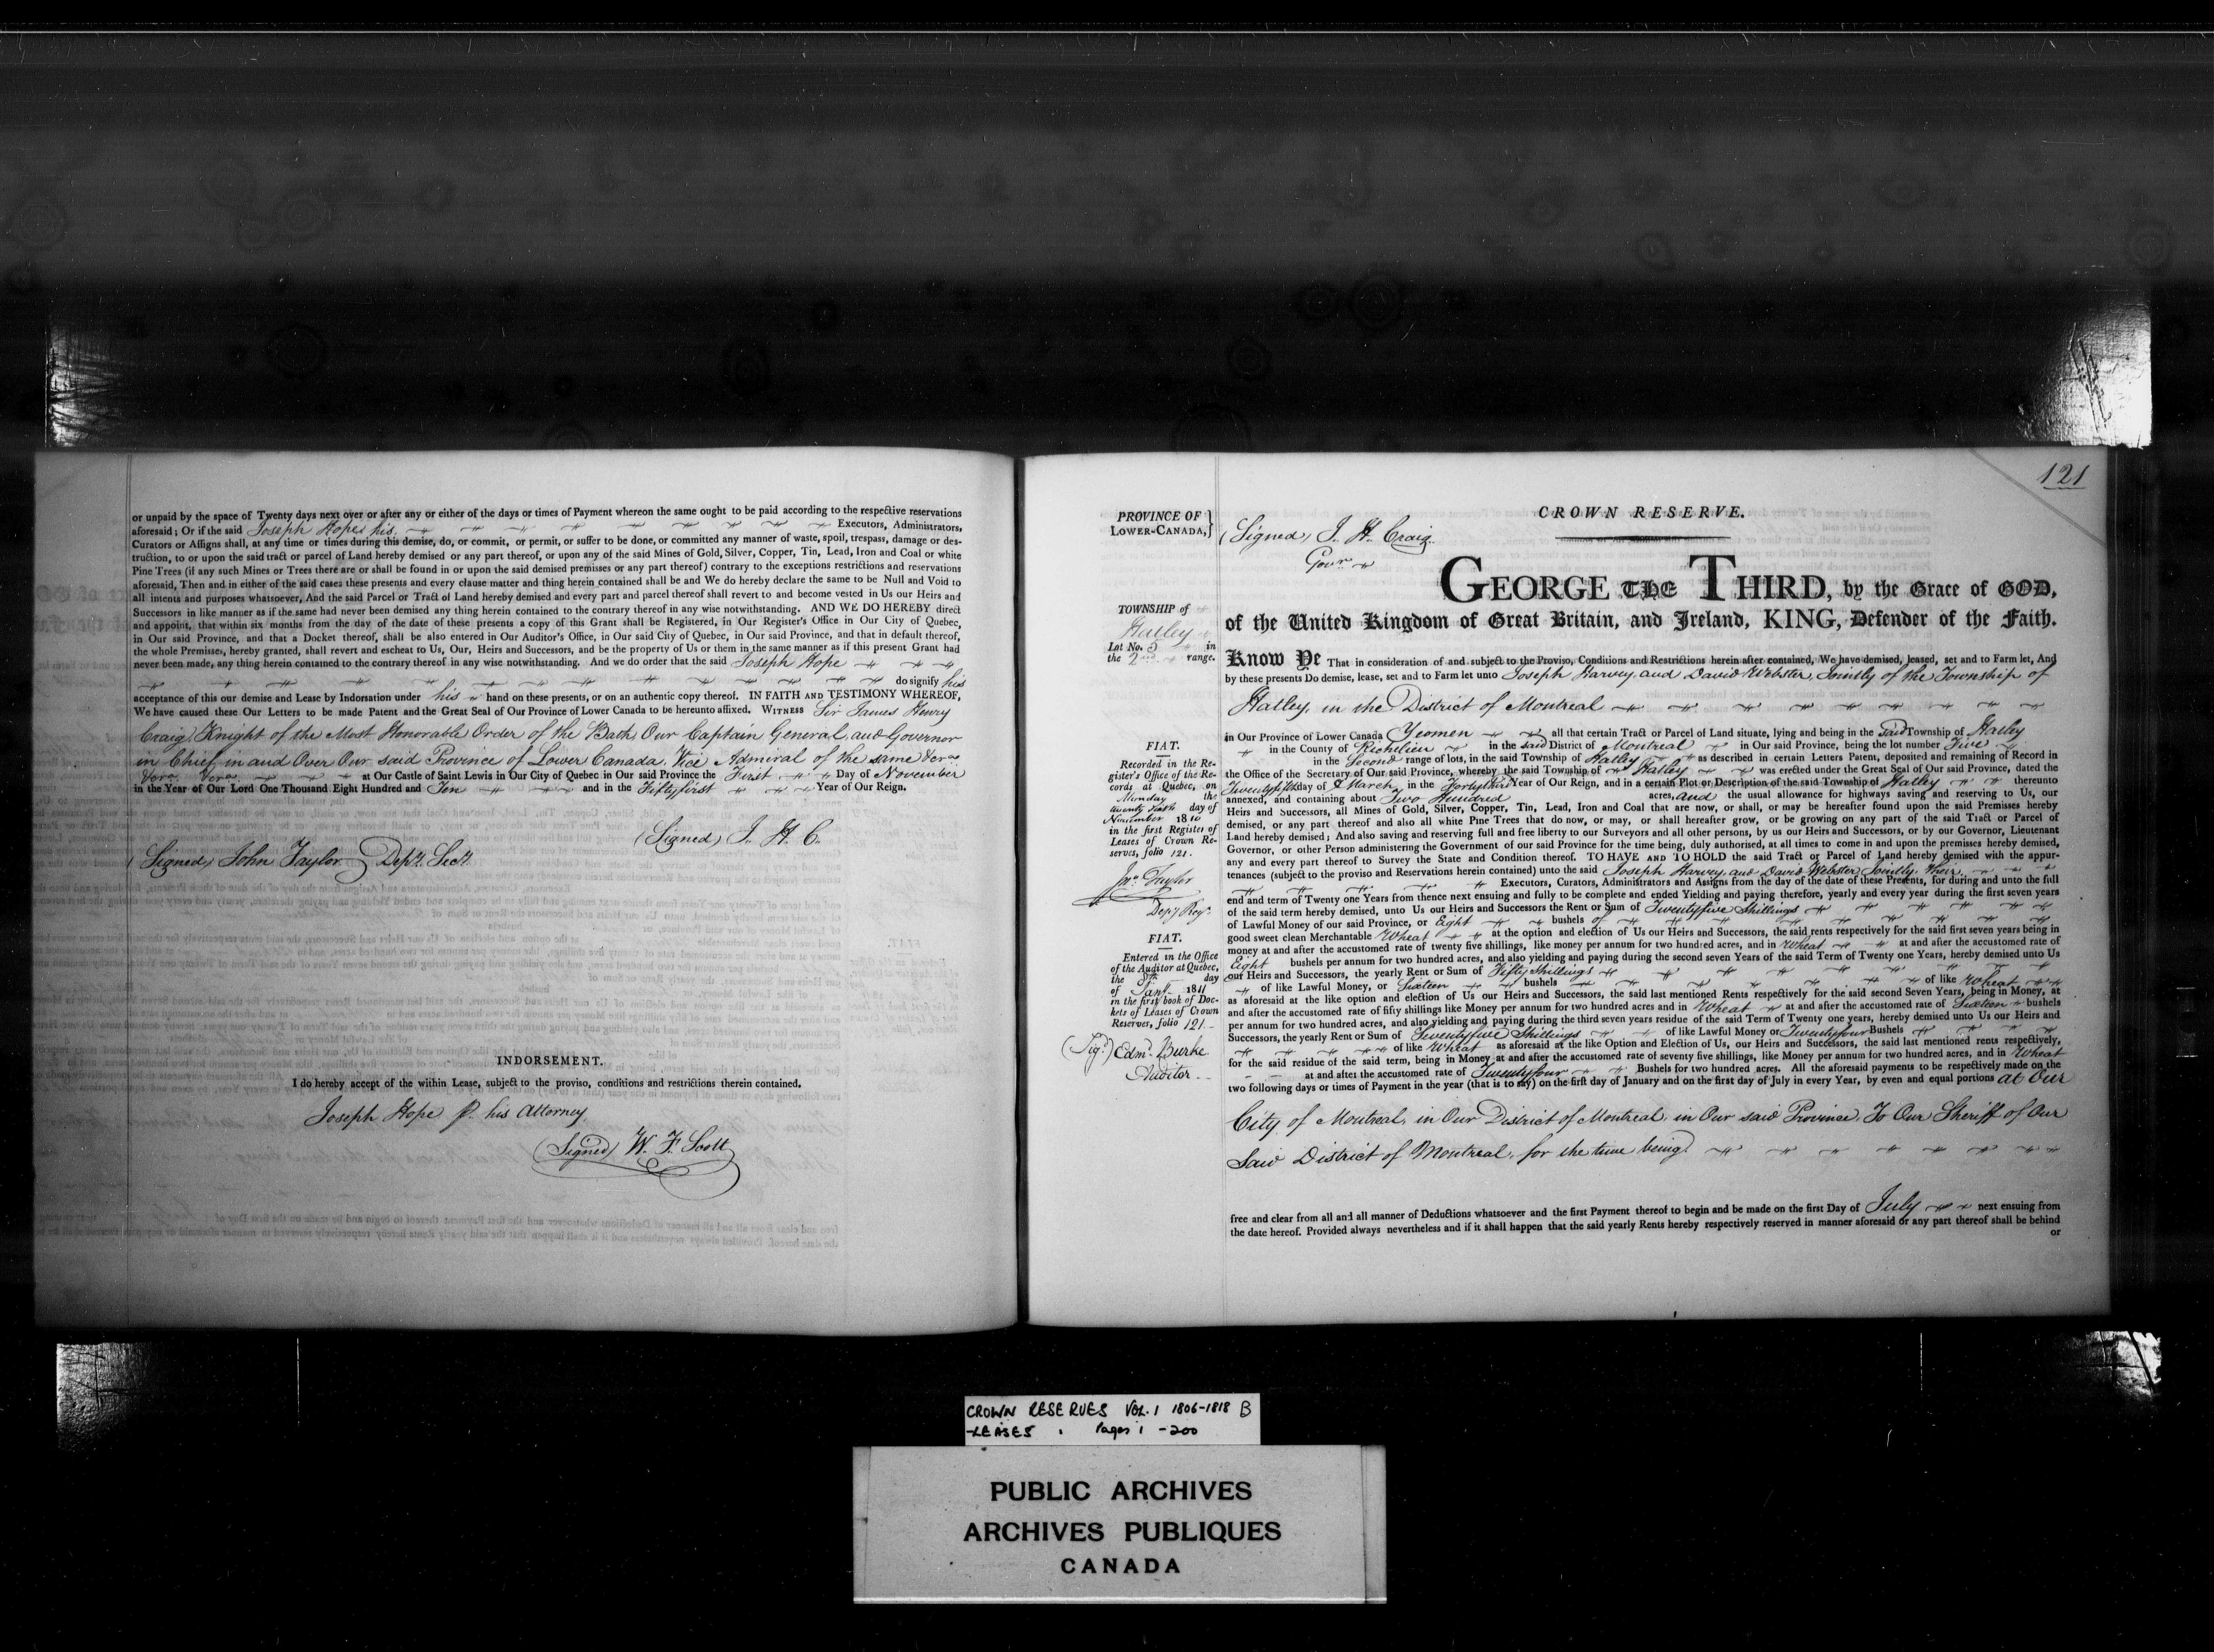 or unpaid by the space of Twenty days next over or after any or either of the days or times of Payment whereon the same ought to be paid according to the respective reservations
aforesaid; Or if the said Joseph Hope, his Executors, Administrators,
Curators or Assigns shall, at any time or times during this demise, do, or commit, or permit, or suffer to be done, or committed any manner of waste, spoil, trespass, damage or des-
truction, to or upon the said tract or parcel of Land hereby demised or any part thereof, or upon any of the said Mines of Gold, Silver, Copper, Tin, Lead, Iron and Coal or white
Pine Trees (if any such Mines or Trees there are or shall be found in or upon the said demised premises or any part thereof) contrary to the exceptions restrictions and reservations
aforesaid, Then and in either of the said cases these presents and every clause matter and thing herein contained shall be and We do hereby declare the same to be Null and Void to
all intents and purposes whatsoever, And the said Parcel or Tract of Land hereby demised and every part and parcel thereof shall revert to and become vested in Us our Heirs and
Successors in like manner as if the same had never been demised any thing herein contained to the contrary thereof in any wise notwithstanding. AND WE DO HEREBY direct
and appoint, that within six months from the day of the date of these presents a copy of this Grant shall be Registered, in Our Register's Office in Our City of Quebec,
in Our said Province, and that a Docket thereof, shall be also entered in Our Auditor's Office, in Our said City of Quebec, in Our said Province, and that in default thereof,
the whole Premisses, hereby granted, shall revert and escheat to Us, Our, Heirs and Successors, and be the property of Us or them in the same manner as if this present Grant had
never been made, any thing herein contained to the contrary thereof in any wise notwithstanding. And we do order that the said Joseph Hope
do signify his
acceptance of this our demise and Lease by Indorsation under his hand on these presents, or on an authentic copy thereof. IN FAITH AND TESTIMONY WHEREOF,
We have caused these Our Letters to be made Patent and the Great Seal of Our Province of Lower Canada to be hereunto affixed. WITNESS Sir James Henry
Craig, Knight of the Most Honorable Order of the Bath, Our Captain General, and Governor
in Chief, in and Over Our said Province of Lower Canada, Vice Admiral of the same &ca
&ca &ca at Our Castle of Saint Lewis in Our City of Quebec in Our said Province the First Day of November
in the Year of Our Lord One Thousand Eight Hundred and Ten and in the Fiftyfirst Year of Our Reign.
(Signed) J. H. C.
(Signed) John Taylor Depy. Secy.
INDORSEMENT.
I do hereby accept of the within Lease, subject to the proviso, conditions and restrictions therein contained.
Joseph Hope p. his Attorney
(Signed) W. F. Scott
121
PROVINCE OF
LOWER-CANADA,}
(Signed) J. H. Craig
Govr.
CROWN RESERVE.
GEORGE THE THIRD, by the Grace of GOD,
of the United Kingdom of Great Britain, and Ireland, KING, Defender of the Faith.
TOWNSHIP of
Hatley
Lot No. 5 in
the 2nd range.
Know Ye That in consideration of and subject to the Proviso, Conditions and Restrictions herein after contained, We have demised, leased, set and to Farm let, And
by these presents Do demise, lease, set and to Farm let unto Joseph Harvey, and David Webster, Jointly of the Township of
Hatley, in the District of Montreal
in Our Province of Lower Canada Yeomen all that certain Tract or Parcel of Land situate, lying and being in the said Township of Hatley
in the County of Richelieu in the said District of Montreal in Our said Province, being the lot number Five
in the Second range of lots, in the said Township of Hatley as described in certain Letters Patent, deposited and remaining of Record in
the Office of the Secretary of Our said Province, whereby the said Township of Hatley was erected under the Great Seal of Our said Province, dated the
Twentyfifth day of March in the Fortythird Year of Our Reign, and in a certain Plot or Description of the said Township of Hatley thereunto
annexed, and containing about Two Hundred acres, and the usual allowance for highways saving and reserving to Us, our
Heirs and Successors, all Mines of Gold, Silver, Copper, Tin, Lead, Iron and Coal that are now, or shall, or may be hereafter found upon the said Premises hereby
demised, or any part thereof and also all white Pine Trees that do now, or may, or shall hereafter grow, or be growing on any part of the said Tract or Parcel of
Land hereby demised; And also saving and reserving full and free liberty to our Surveyors and all other persons, by us our Heirs and Successors, or by our Governor, Lieutenant
Governor, or other Person administering the Government of our said Province for the time being, duly authorised, at all times to come in and upon the premises hereby demised,
any and every part thereof to Survey the State and Condition thereof. TO HAVE AND TO HOLD the said Tract or Parcel of Land hereby demised with the appur-
tenances (subject to the proviso and Reservations herein contained) unto the said Joseph Harvey, and David Webster, Jointly, their
Executors, Curators, Administrators and Assigns from the day of the date of these Presents, for during and unto the full
end and term of Twenty one Years from thence next ensuing and fully to be complete and ended Yielding and paying therefore, yearly and every year during the first seven years
of the said term hereby demised, unto Us our Heirs and Successors the Rent or Sum of Twentyfive Shillings
of Lawful Money of our said Province, or Eight bushels of
good sweet clean Merchantable Wheat at the option and election of Us our Heirs and Successors, the said rents respectively for the said first seven years being in
money at and after the accustomed rate of twenty five shillings, like money per annum for two hundred acres, and in Wheat at and after the accustomed rate of
Eight bushels per annum for two hundred acres, and also yielding and paying during the second seven Years of the said Term of Twenty one Years, hereby demised unto Us
our Heirs and Successors, the yearly Rent or Sum of Fifty Shillings
of like Lawful Money, or Sixteen bushels of like Wheat
as aforesaid at the like option and election of Us our Heirs and Successors, the said last mentioned Rents respectively for the said second Seven Years, being in Money, at
and after the accustomed rate of fifty shillings like Money per annum for two hundred acres and in Wheat at and after the accustomed rate of Sixteen bushels
per annum for two hundred acres, and also yielding and paying during the third seven years residue of the said Term of Twenty one years, hereby demised unto Us our Heirs and
Successors, the yearly Rent or Sum of Seventyfive Shillings of like Lawful Money or Twentyfour Bushels
of like Wheat as aforesaid at the like Option and Election of Us, our Heirs and Successors, the said last mentioned rents respectively,
for the said residue of the said term, being in Money at and after the accustomed rate of seventy five shillings, like Money per annum for two hundred acres, and in Wheat
at and after the accustomed rate of Twentyfour Bushels for two hundred acres. All the aforesaid payments to be respectively made on the
two following days or times of Payment in the year (that is to say) on the first day of January and on the first day of July in every Year, by even and equal portions at Our
City of Montreal, in Our District of Montreal, in Our said Province, To Our Sheriff of Our
Said District of Montreal, for the time being
free and clear from all and all manner of Deductions whatsoever and the first Payment thereof to begin and be made on the first Day of July next ensuing from
the date hereof. Provided always nevertheless and if it shall happen that the said yearly Rents hereby respectively reserved in manner aforesaid or any part thereof shall be behind
or
FIAT.
Recorded in the Re-
gister's Office of the Re-
cords at Quebec, on
Monday the
day of
November 1810
in the first Register of
Leases of Crown Re-
serves, folio 121.
Jno. Taylor
Depy. Regr.
FIAT.
Entered in the Office
of the Auditor at Quebec,
the 8th day
of Jany. 1811
in the first book of Doc-
kets of Leases of Crown
Reserves, folio 121
(Sigd.) Edmd. Burke
Auditor
CROWN RESERVES VOL. 1 1806-1818 B
-LEASES Pages 1 -200
PUBLIC ARCHIVES
ARCHIVES PUBLIQUES
CANADA